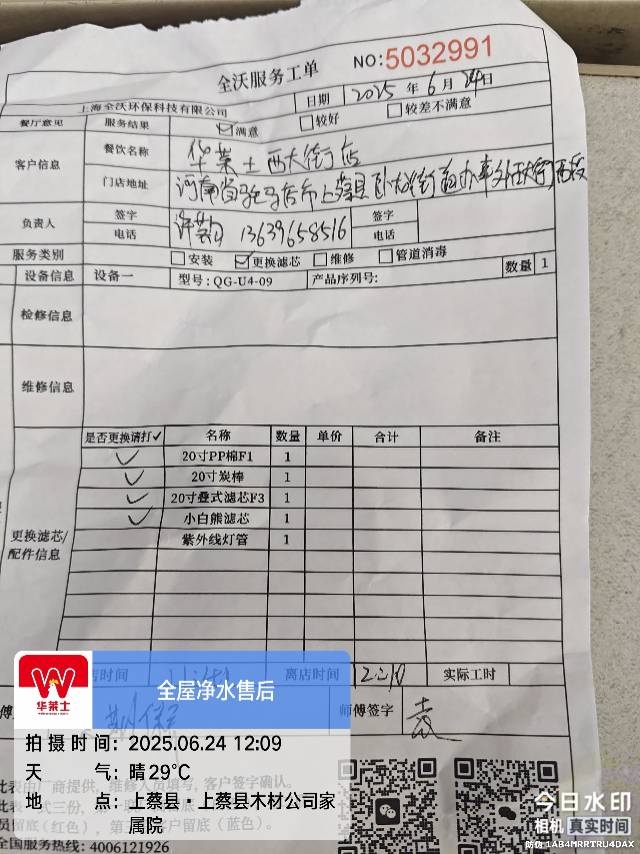 全沃服务工单 NO:5032991
上海全沃环保科技有限公司 日期 2025 年 6 月 24 日
餐厅意见 服务结果 满意 较好 较差不满意
客户信息 餐饮名称 华莱士西大街店
门店地址 河南省驻马店市上蔡县卧龙街道办事处西大街西段
负责人 签字 签字
电话 13639658516 电话
服务类别 安装 更换滤芯 维修 管道消毒
设备信息 设备一 型号:QG-U4-09 产品序列号: 数量 1
检修信息
维修信息
更换滤芯/配件信息 是否更换请打✓ 名称 数量 单价 合计 备注
✓ 20寸PP棉F1 1
✓ 20寸炭棒 1
✓ 20寸叠式滤芯F3 1
✓ 小白熊滤芯 1
紫外线灯管 1
店时间 离店时间 12:10 实际工时
师傅签字
华莱士
全屋净水售后
拍摄时间:2025.06.24 12:09
天气:晴29℃
地点:上蔡县·上蔡县木材公司家属院
此表由厂商提供,维修人员填写,客户签字确认。
此表一式三份,
员留底(红色),第 客户留底(蓝色)。
全国服务热线:4006121926
今日水印
相机 真实时间
防伪 1AB4MRRTRU4DAX